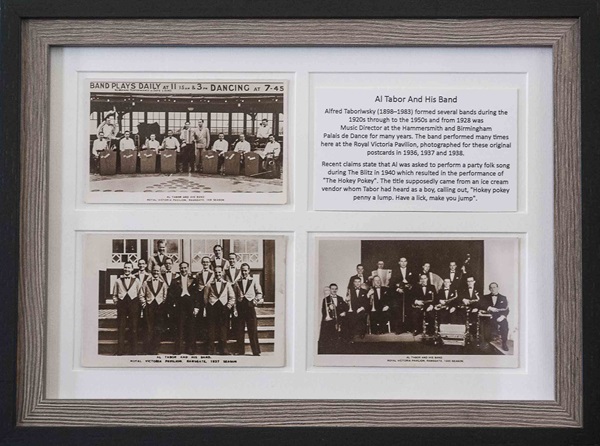 BAND PLAYS DAILY AT 11 & 3 DANCING AT 7-45
AL TABOR AND HIS BAND
ROYAL VICTORIA PAVILION, RAMSGATE,
Al Tabor And His Band
Alfred Taboriwsky (1898-1983) formed several bands during the
1920s through to the 1950s and from 1928 was
Music Director at the Hammersmith and Birmingham
Palais de Dance for many years. The band performed many times
here at the Royal Victoria Pavilion, photographed for these original
postcards in 1936, 1937 and 1938.
Recent claims state that Al was asked to perform a party folk song
during The Blitz in 1940 which resulted in the performance of
"The Hokey Pokey". The title supposedly came from an ice cream
vendor whom Tabor had heard as a boy, calling out, "Hokey pokey
penny a lump. Have a lick, make you jump".
AL TABOR AND HIS BAND.
ROYAL VICTORIA PAVILION, RAMSGATE, 1937 SEASON
AL TABOR AND HIS BAND
ROYAL VICTORIA PAVILION, RAMSGATE, SEASON